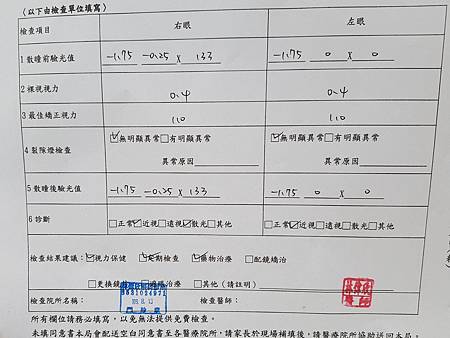 （以下由檢查單位填寫）
檢查項目 右眼 左眼
1 散瞳前驗光值 -1.75 -0.25 x 133 -1.75 0 x 0
2 裸視視力 0.4 0.4
3 最佳矯正視力 1.0 1.0
4 裂隙燈檢查 ☑無明顯異常□有明顯異常 ☑無明顯異常□有明顯異常
異常原因 異常原因
5 散瞳後驗光值 -1.75 -0.25 x 133 -1.75 0 x 0
6 診斷 □正常☑近視□遠視☑散光□其他 □正常☑近視□遠視□散光□其他
檢查結果建議：☑視力保健 ☑定期檢查 ☑藥物治療 □配鏡矯治
□更換鏡 治療 □其他（請註明）
檢查院所名稱： 檢查醫師：
所有欄位請務必填寫，以免無法提供免費檢查。
未填同意書本局會配送空白同意書至各醫療院所，請家長於現場補填後，請醫療院所協助送回本局。